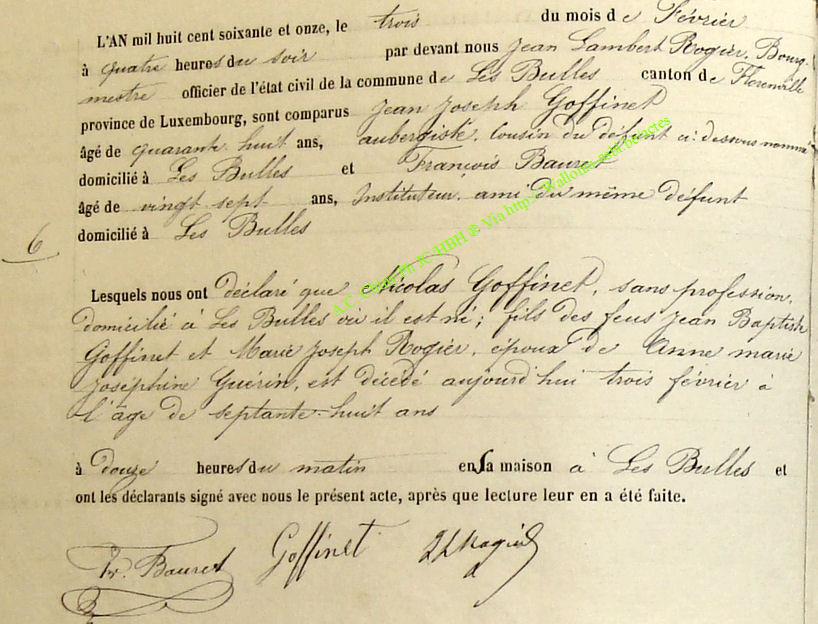 L'AN mil huit cent soixante et onze, le trois du mois de Février
à quatre heures du soir par devant nous Jean Lambert Rogier, Bourg-
mestre officier de l'état civil de la commune de Les Bulles canton de Florenville
province de Luxembourg, sont comparus Jean Joseph Goffinet
âgé de quarante huit ans, aubergiste, Cousin du défunt ci-dessous nommé
domicilié à Les Bulles et François Bauret
âgé de vingt sept ans, Instituteur, ami du même défunt
domicilié à Les Bulles
6
Lesquels nous ont déclaré que Nicolas Goffinet, sans profession,
domicilié à Les Bulles où il est né; fils des feus Jean Baptiste
Goffinet et Marie Joseph Rogier, époux de Anne marie
Joséphine Guérin, est décédé aujourd'hui trois février à
l'âge de septante-huit ans
à douze heures du matin en sa maison à Les Bulles et
ont les déclarants signé avec nous le présent acte, après que lecture leur en a été faite.
Fr. Bauret Goffinet JLRogier
HBH @ Via http